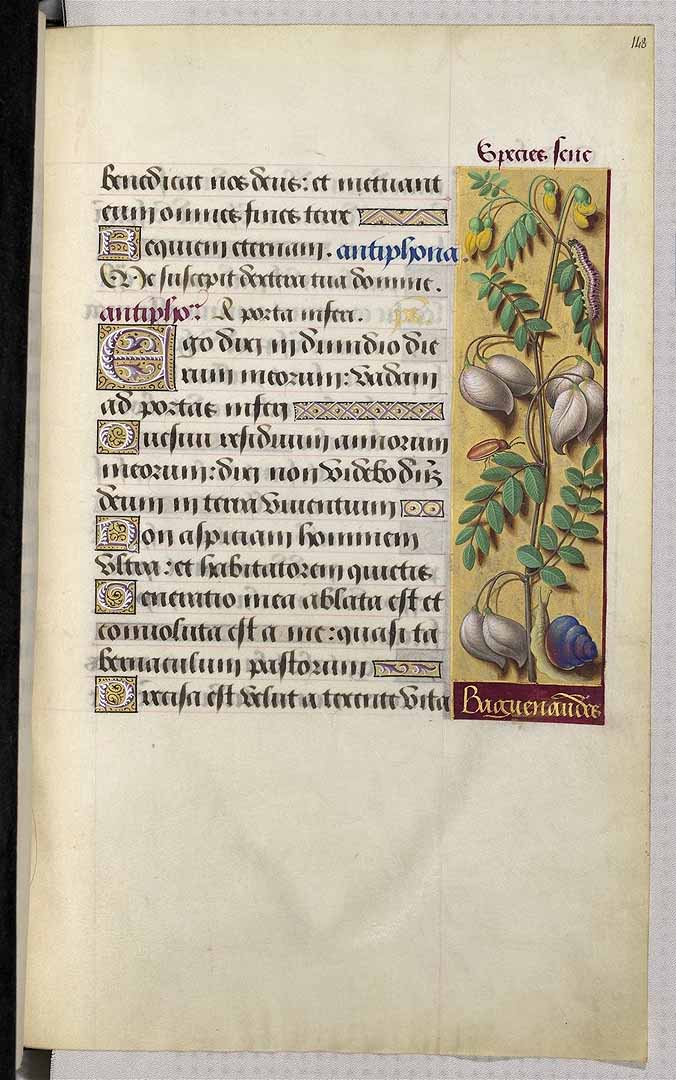 148
Species sene
benedicat nos deus: et metuant
eum omnes fines terre
Requiem eternam. antiphona
Me suscepit dextera tua domine.
antipho. A porta inferi. ps.
Ego dixi in dimidio die
rum meorum: Vadam
ad portas inferi
Quesivi residuum annorum
meorum: dixi non Videbo dn̄z
deum in terra Viventium
Non aspiciam hominem
Vltra: et habitatorem quietis
Generatio mea ablata est et
convoluta est a me: quasi ta
bernaculum pastorum
Precisa est Velut a texente Vita
Baguenaudes